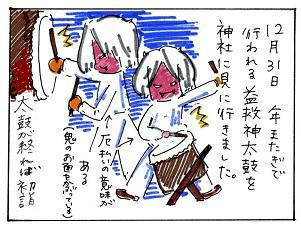 12月31日 年またぎで
行われる益救神太鼓を
神社に見に行きました。
厄払いの意味が
ある
(鬼のお面を被っている)
太鼓が終れば初詣